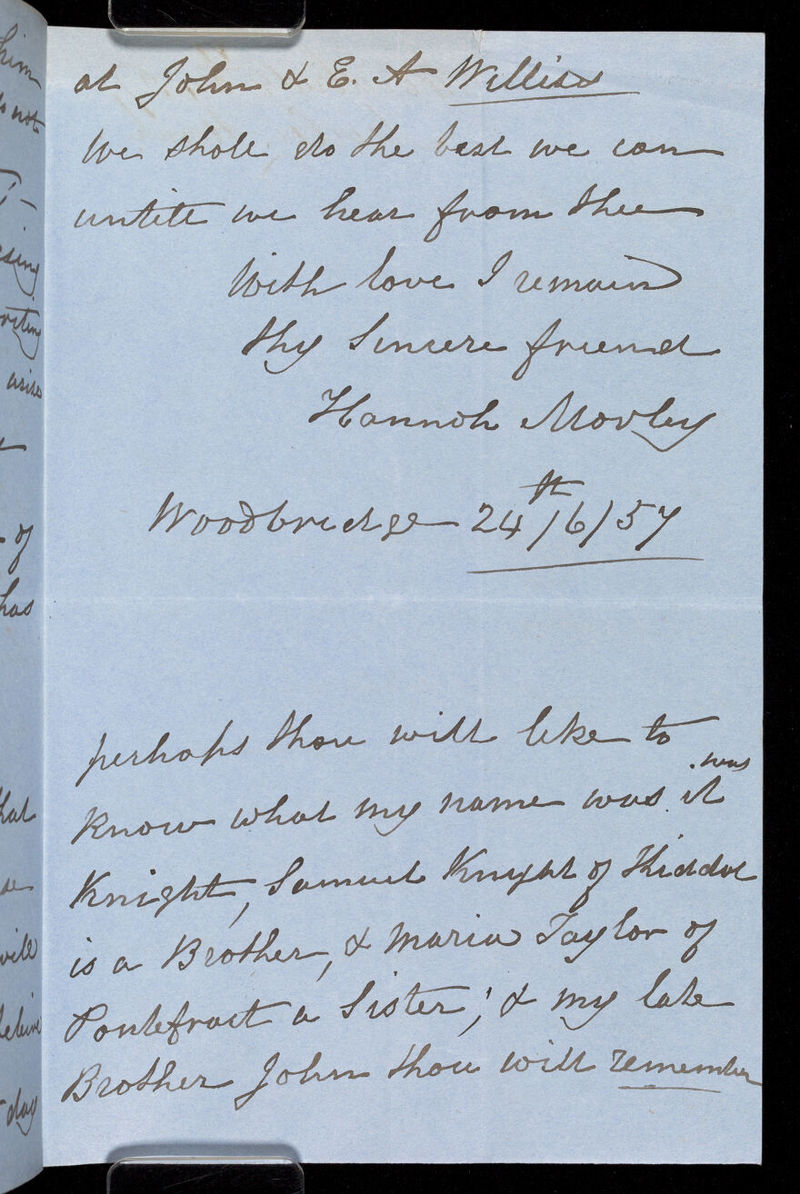 him
do not
sing
writing
arise
of
has
that
will
day
at John & E. A Williss
We shall do the best we can
untill we hear from thee
With love I remain
thy Sincere friend
Hannah Morley
Woodbridge 24th/6/57
perhaps thou will like to
was
know what my name was it
Knight, Samuel Knight of Thiddol
is a Brother, & Maria Taylor of
Pontefract a Sister; & my late
Brother John thou will remember